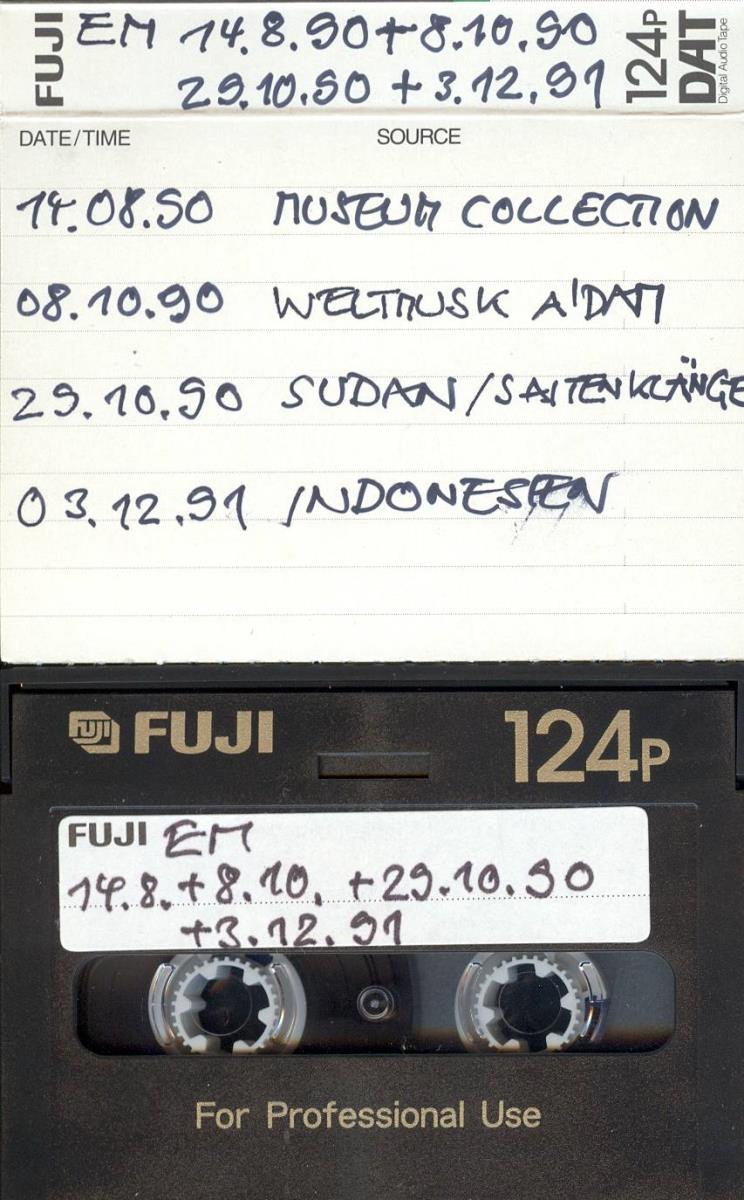 FUJI EM 14.8.90 + 8.10.90 124P DAT Digital Audio Tape
29.10.90 + 3.12.91
DATE/TIME SOURCE
14.08.90 MUSEUM COLLECTION
08.10.90 WELTMUSK A'DAM
29.10.90 SUDAN/SAITENKLÄNGE
03.12.91 INDONESIEN
FUJI FUJI 124P
FUJI EM
14.8. + 8.10. + 29.10.90
+3.12.91
For Professional Use